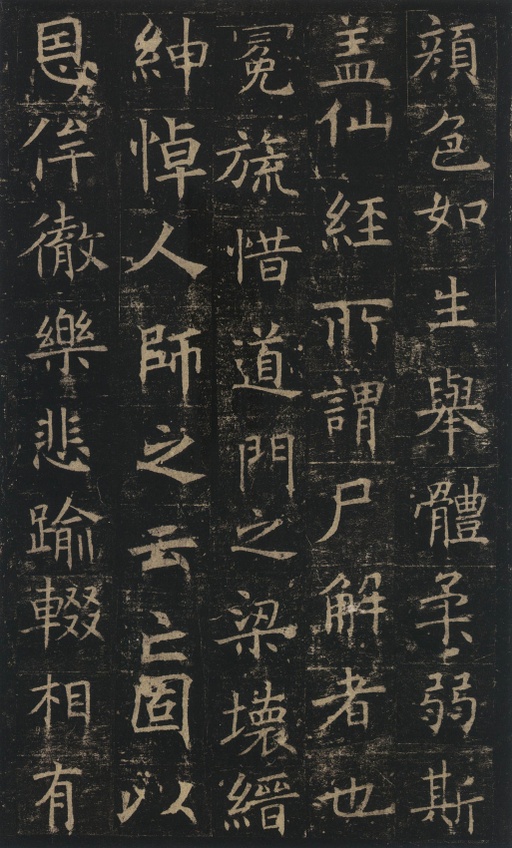 顔色如生舉體柔弱斯
盖仙經所謂尸解者也
冕旒惜道門之梁壞縉
紳悼人師之云亡固以
恩侔徹樂悲踰輟相有